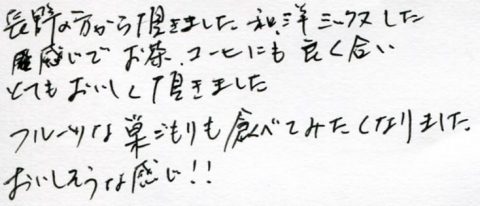 長野の方から頂きました。和、洋ミックスした
感じで お茶、コーヒーにも 良く合い
とてもおいしく頂きました
フルーツな巣ごもりも食べてみたくなりました。
おいしそうな感じ!!